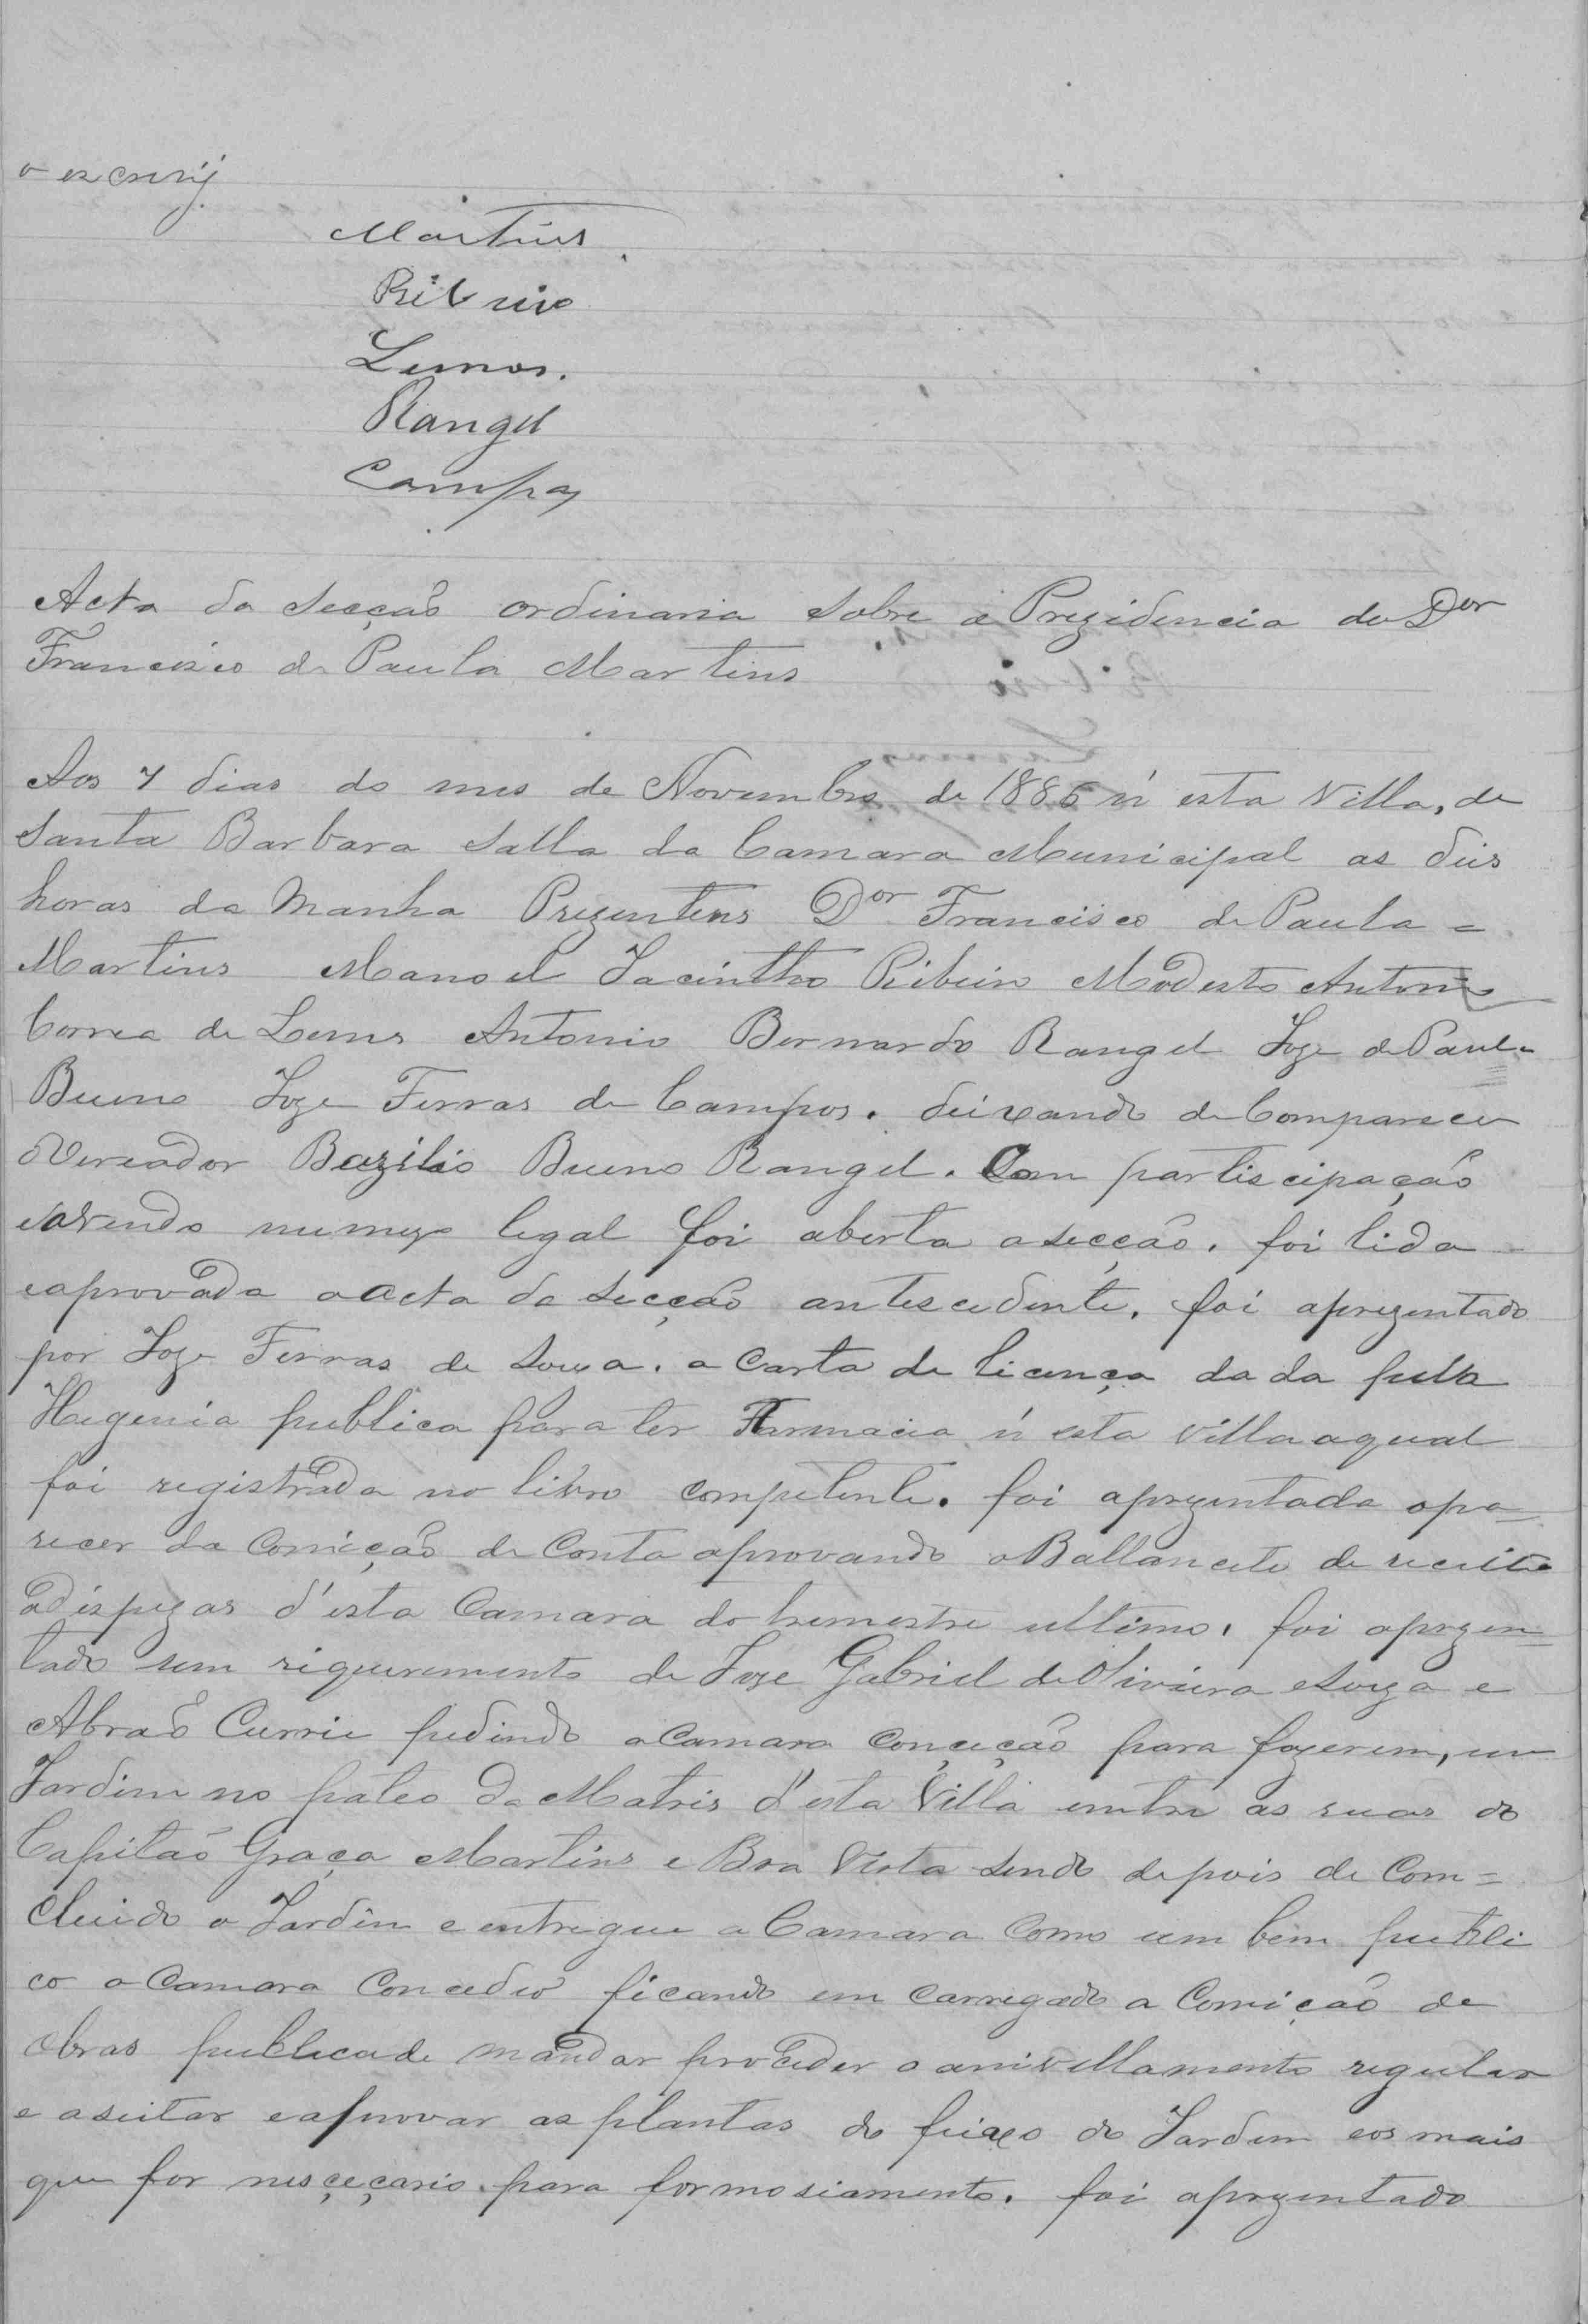 o escrevij
Martins
Ribeiro
Lemos.
Rangel
Campos
Acta da secção ordinaria sobre a Prezidencia do Dor
Francisco de Paula Martins
Aos 7 dias do mes de Novembro de 1885 n'esta Villa, de
Santa Barbara Salla da Camara Municipal as deis
horas da Manha Prezentens Dor Francisco de Paula =
Martins Manoel Jacintho Ribeiro Modesto Antonio
Correa de Lemos Antonio Bernardo Rangel Joze de Paula
Bueno Joze Ferras de Campos. deixando de Comparecer
oVereador Bazilio Bueno Rangel. Com partiscipação
avendo numero legal foi aberta a secção. foi lida
eaprovada a acta da secção antescedente. foi aprezentado
por Joze Ferras de Souza. a Carta de licença dada pella
Hegenia publica para ter Farmacia n'esta villa aqual
foi registrada no livro competente. foi aprezentada opa=
recer da Comição de Conta aprovando oBallancete de receita
adespezas d'esta Camara do tremestre ultimo. foi aprezen=
tado um riquerimento de Joze Gabriel de Oliveira eSouza e
Abraõ Currie pedindo a Camara Conçeção para fazerem, um
Jardim no pateo da Matris d'esta Villa emtre as ruas do
Capitaõ Graça Martins e Boa Vista sendo depois de Com=
cluido o Jardin e entregue a Camara Como um bem publi
co a Camara Concedeo ficando em Carregado a Comição de
Obras publica de mandar proceder o anivellamento regular
e aseitar eaprovar as plantas do feixo do Jardim eos mais
que for nesçeçario. para formosiamento. foi aprezentado